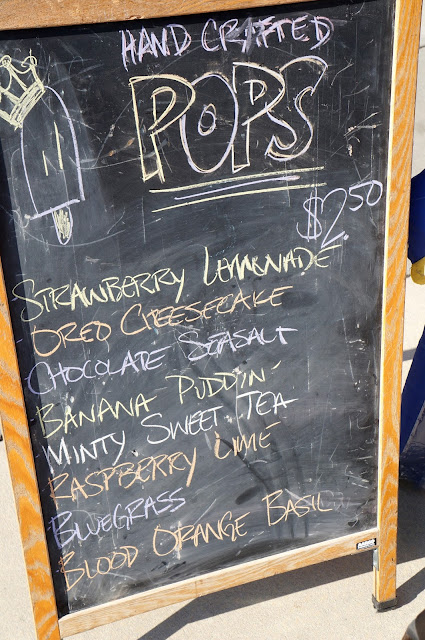 HAND CRAFTED
POPS
$2.50
STRAWBERRY LEMONADE
OREO CHEESECAKE
CHOCOLATE SEASALT
BANANA PUDDIN'
MINTY SWEET TEA
RASPBERRY LIME
BLUEGRASS
BLOOD ORANGE BASIL